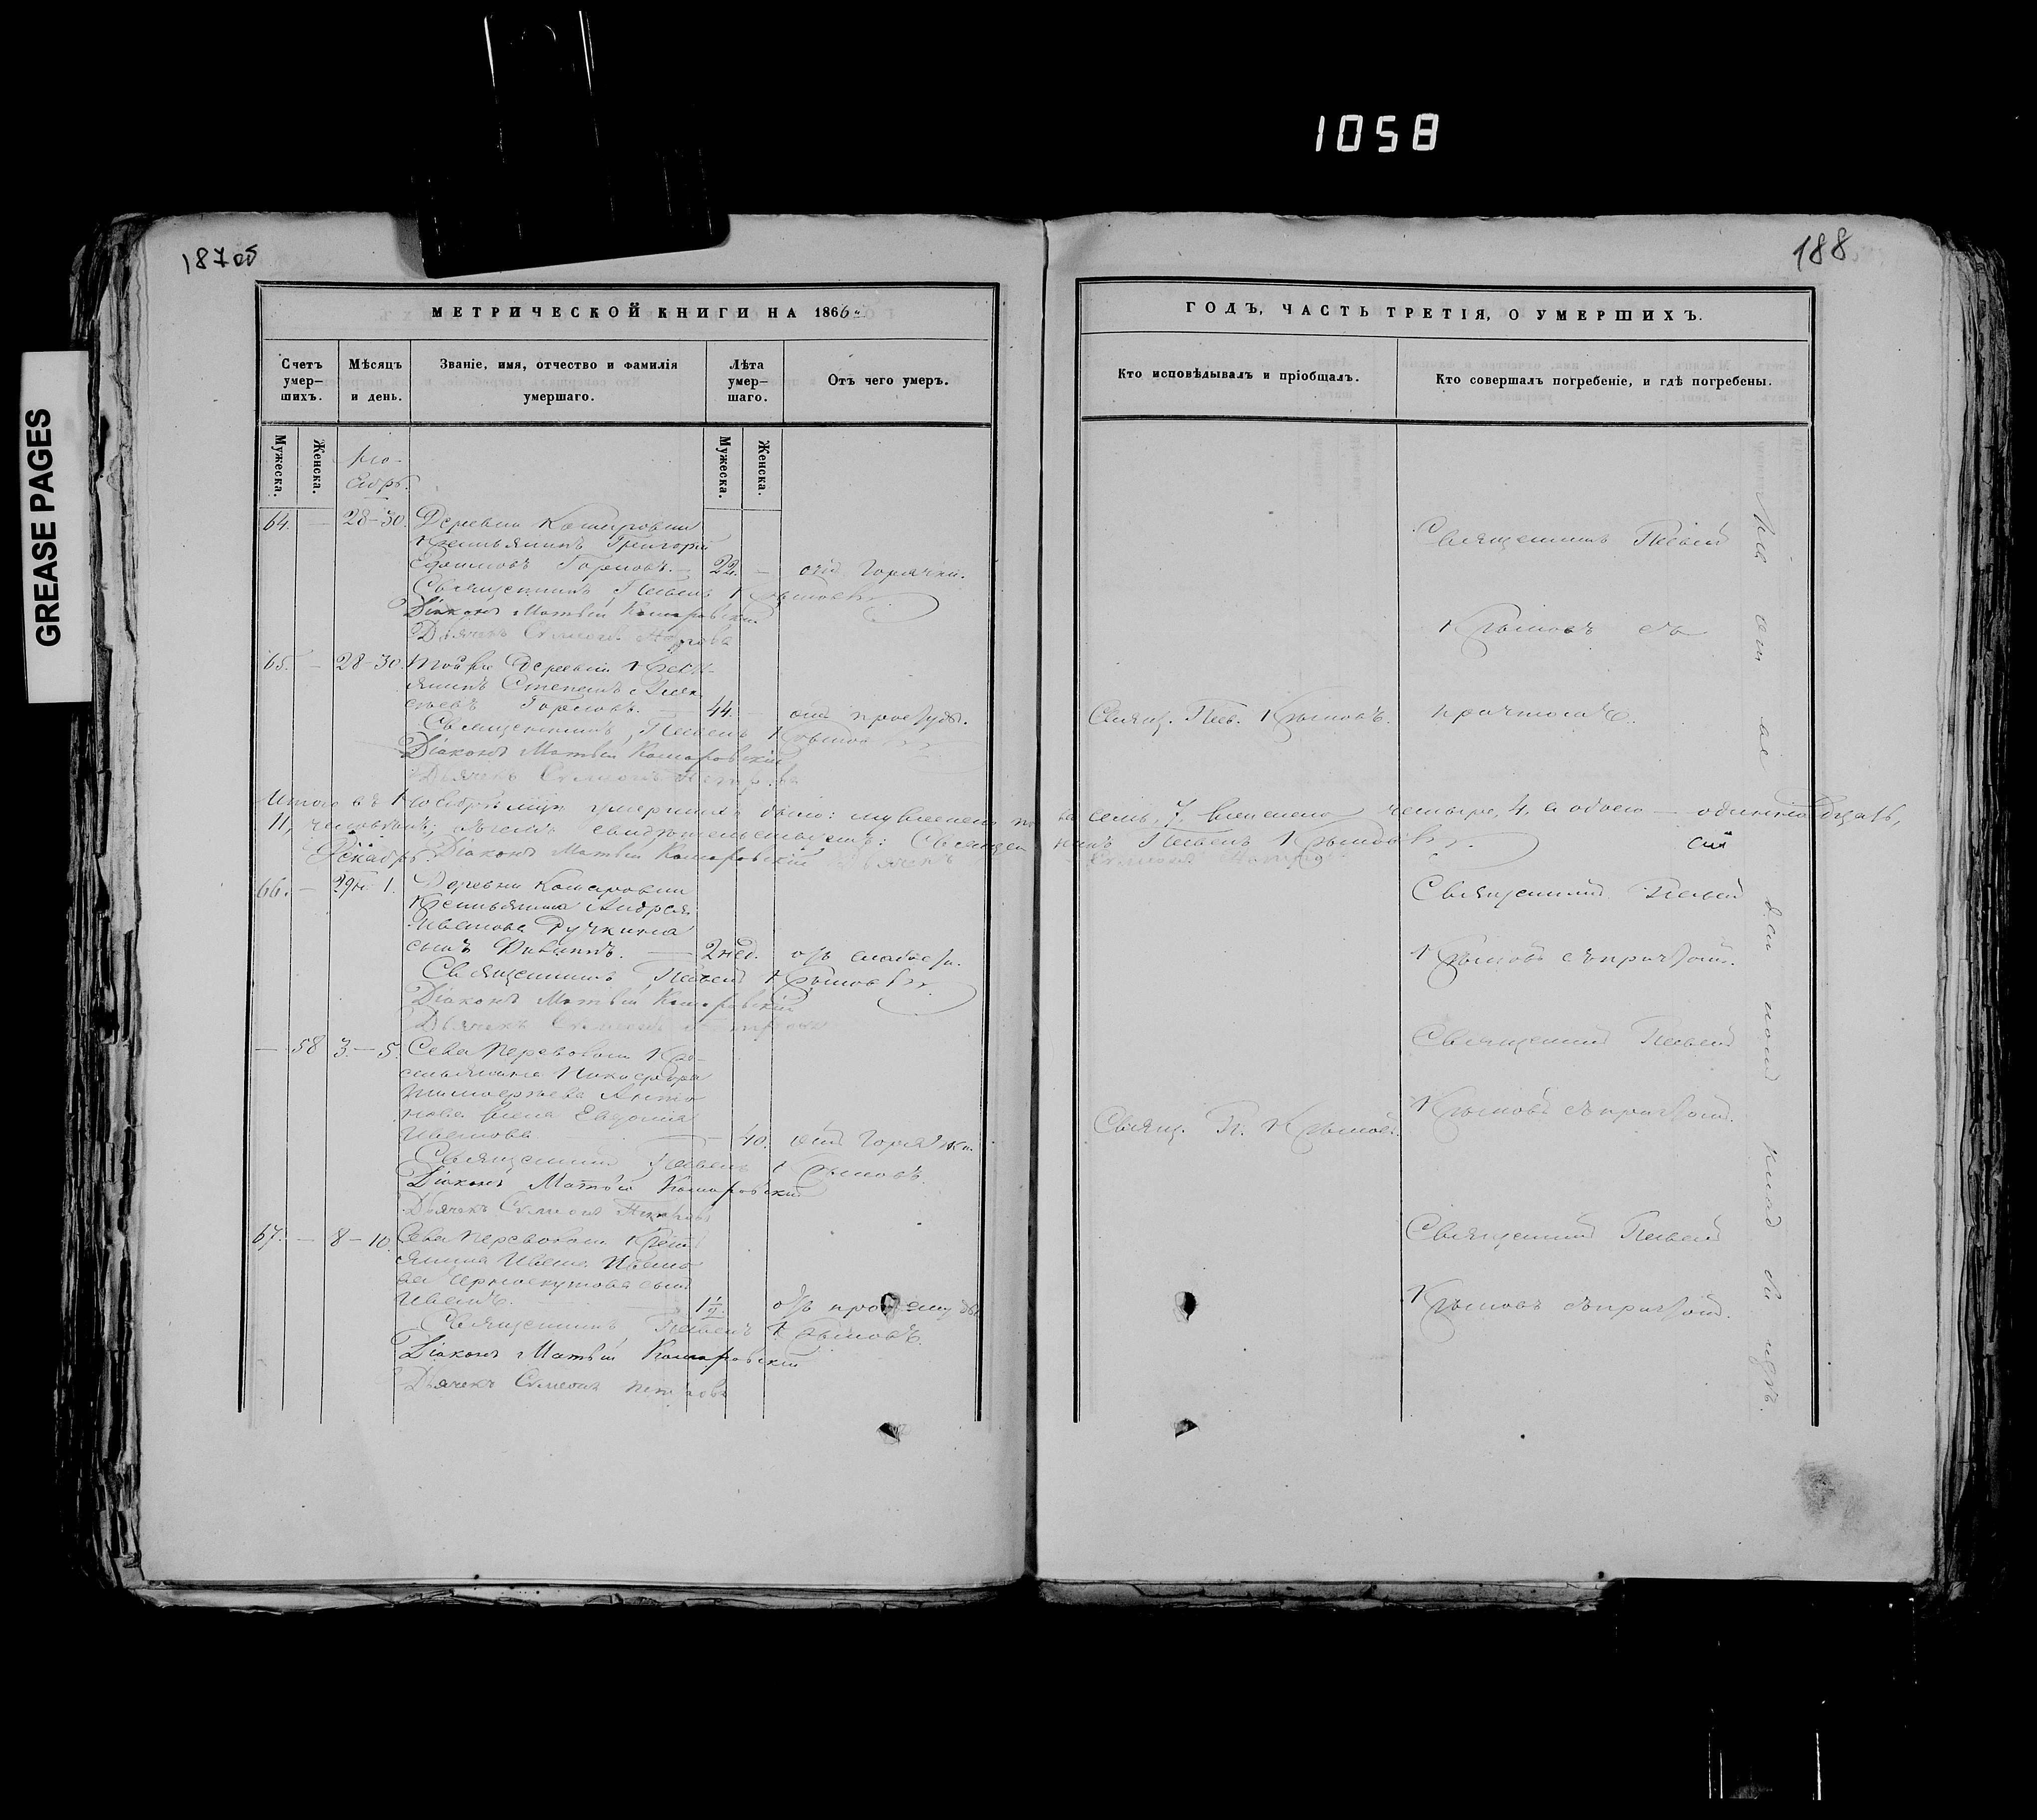 1058
GREASE PAGES
187об
188
МЕТРИЧЕСКОЙ КНИГИ НА 1866
Счетъ умер-
шихъ.
Мѣсяцъ
и день.
Званіе, имя, отчество и фамилія
умершаго.
Лѣта
умер-
шаго.
Отъ чего умеръ.
Мужеска.
Женска.
Мужеска.
Женска.
Но-
ябрь.
64. — 28-30. Деревни Комаровки
крестьянинъ Григорій
Ефимовъ Горловъ. — 22. — отъ горячки.
Священникъ Павелъ Крыловъ
Діаконъ Матвѣй Комаровскій
Дьячекъ Симеонъ Петровъ
65. — 28-30. Той же деревни крест-
янинъ Степанъ Алек
сѣевъ Горловъ. — 44. — отъ простуды.
Священникъ Павелъ Крыловъ
Діаконъ Матвѣй Комаровскій
Дьячекъ Симеонъ Петровъ
Итого въ Ноябрѣ умершихъ было: мужескаго по
11, человѣкъ; въ чемъ свидѣтельствуемъ: Священ
Декабрь. Діаконъ Матвѣй Комаровскій Дьячекъ
66. — 29н. 1. Деревни Комаровки
крестьянина Андрея
Иванова Ручкина
сынъ Филиппъ. — 2 нед. отъ слабости.
Священникъ Павелъ Крыловъ
Діаконъ Матвѣй Комаровскій
Дьячекъ Симеонъ Петровъ
— 58 3.-5. Села Перевозки кре-
стьянина Никифора
Тимофеева Анто
нова жена Евдокія
Иванова — 40. отъ горячки.
Священникъ Павелъ Крыловъ.
Діаконъ Матвѣй Комаровскій
Дьячекъ Симеонъ Петровъ
67. — 8-10. Села Перевозки крест
янина Ивана Ивано
ва сынъ
Иванъ. — 1½.
Священникъ Павелъ Крыловъ.
Діаконъ Матвѣй Комаровскій
Дьячекъ Симеонъ Петровъ
ГОДЪ, ЧАСТЬ ТРЕТІЯ, О УМЕРШИХЪ.
Кто исповѣдывалъ и пріобщалъ.
Кто совершалъ погребеніе, и гдѣ погребены.
Священникъ Павелъ
Крыловъ съ
Свящ. Пав. Крыловъ. причтомъ.
ла семь, 7 женскаго четыре, 4, а обоего — одиннадцать,
никъ Павелъ Крыловъ.
Симеонъ Петровъ
Священникъ Павелъ
Крыловъ съ причтомъ.
Священникъ Павелъ
Свящ. П. Крыловъ. Крыловъ съ причтомъ.
Священникъ Павелъ
Крыловъ съ причтомъ.